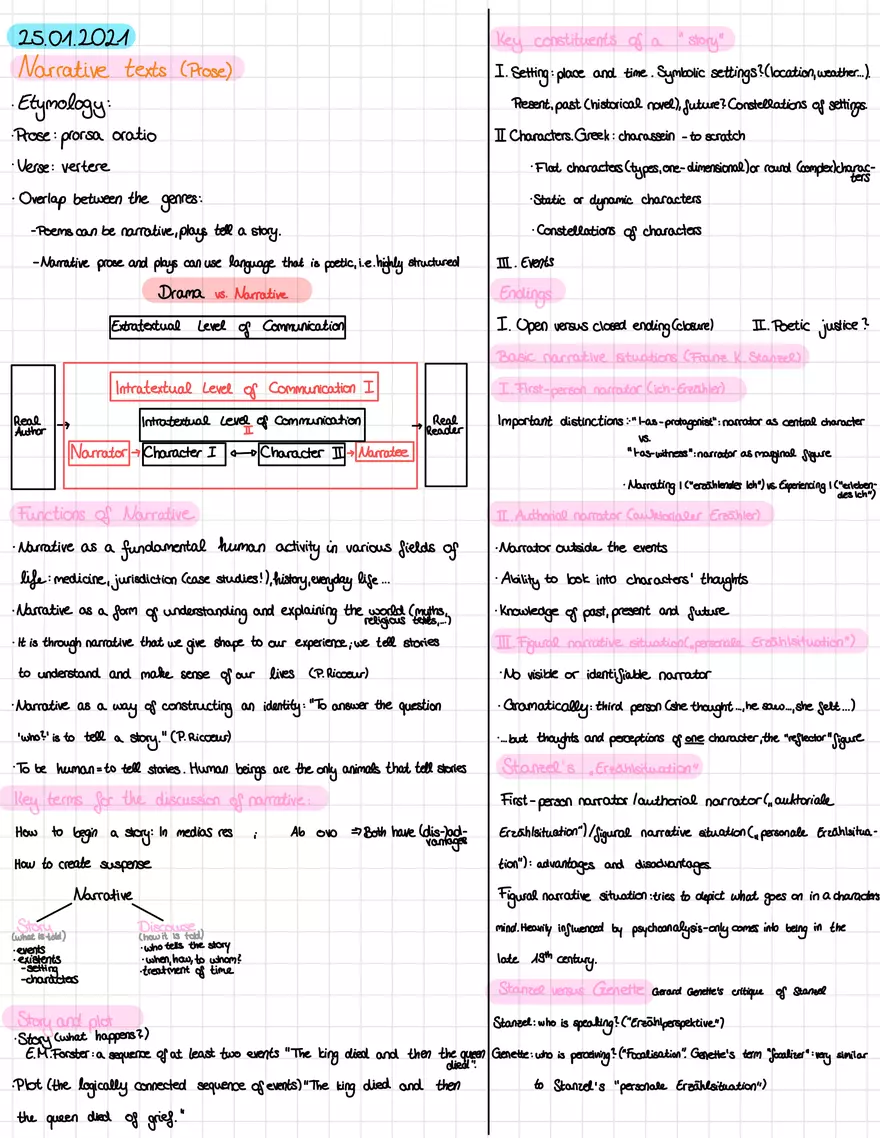 25.01.2021
Narrative texts (Prose)
· Etymology:
· Prose: prorsa oratio
· Verse: vertere
· Overlap between the genres:
- Poems can be narrative, plays tell a story.
- Narrative prose and plays can use language that is poetic, i.e. highly structured
Drama vs. Narrative
Extratextual Level of Communication
Intratextual Level of Communication I
Intratextual Level of Communication
II
Real
Author
Real
Reader
Narrator → Character I ↔ Character II → Narratee
Functions of Narrative
· Narrative as a fundamental human activity in various fields of
life: medicine, jurisdiction (case studies!), history, everyday life ...
· Narrative as a form of understanding and explaining the world (myths,
religious texts,...)
· It is through narrative that we give shape to our experience; we tell stories
to understand and make sense of our lives (P. Ricoeur)
· Narrative as a way of constructing an identity: "To answer the question
'who?' is to tell a story." (P. Ricoeur)
· To be human = to tell stories. Human beings are the only animals that tell stories
Key terms for the discussion of narrative:
How to begin a story: In medias res ; Ab ovo ⇒ Both have (dis-)ad-
vantages
How to create suspense
Narrative
Story
(what is told)
· events
· existents
- setting
- characters
Discourse
(how it is told)
· who tells the story
· when, how, to whom?
· treatment of time
Story and plot
· Story (what happens?)
E.M. Forster: a sequence of at least two events "The king died and then the queen
died".
· Plot (the logically connected sequence of events) "The king died and then
the queen died of grief."
Key constituents of a "story"
I. Setting: place and time. Symbolic settings? (location, weather...).
Present, past (historical novel), future? Constellations of settings.
II Characters. Greek: charassein - to scratch
· Flat characters (types, one-dimensional) or round (complex) charac-
ters
· Static or dynamic characters
· Constellations of characters
III. Events
Endings
I. Open versus closed ending (closure) II. Poetic justice?
Basic narrative situations (Franz K. Stanzel)
I. First-person narrator (ich-Erzähler)
Important distinctions: · "I-as-protagonist": narrator as central character
vs.
"I-as-witness": narrator as marginal figure
· Narrating I ("erzählendes Ich") vs. Experiencing I ("erleben-
des Ich")
II. Authorial narrator (auktorialer Erzähler)
· Narrator outside the events
· Ability to look into characters' thoughts
· Knowledge of past, present and future
III. Figural narrative situation („personale Erzählsituation")
· No visible or identifiable narrator
· Gramatically: third person (she thought ..., he saw..., she felt...)
· ...but thoughts and perceptions of one character, the "reflector" figure
Stanzel's „Erzählsituation"
First-person narrator / authorial narrator („auktoriale
Erzählsituation") / figural narrative situation („personale Erzählsitua-
tion"): advantages and disadvantages
Figural narrative situation: tries to depict what goes on in a characters
mind. Heavily influenced by psychoanalysis - only comes into being in the
late 19th century.
Stanzel versus Genette Gerard Genette's critique of Stanzel
Stanzel: who is speaking? ("Erzählperspektive.")
Genette: who is perceiving? ("Focalisation". Genette's term "focalizer": very similar
to Stanzel's "personale Erzählsituation")